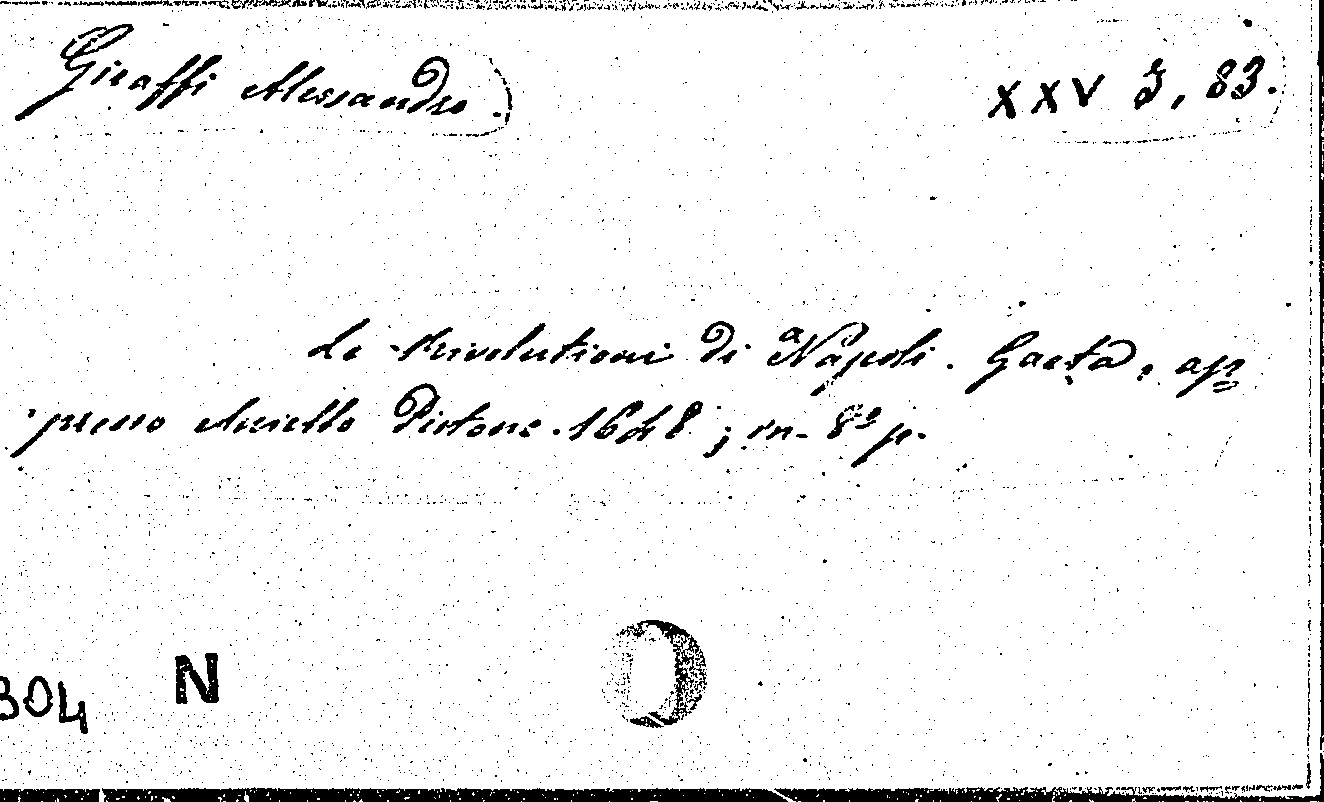 Giraffi Alessandro.
XXV I, 83.
Le Rivolutioni di Napoli. Gaeta, ap=
presso Aniello Pistone. 1648; in-8º p.
304 N